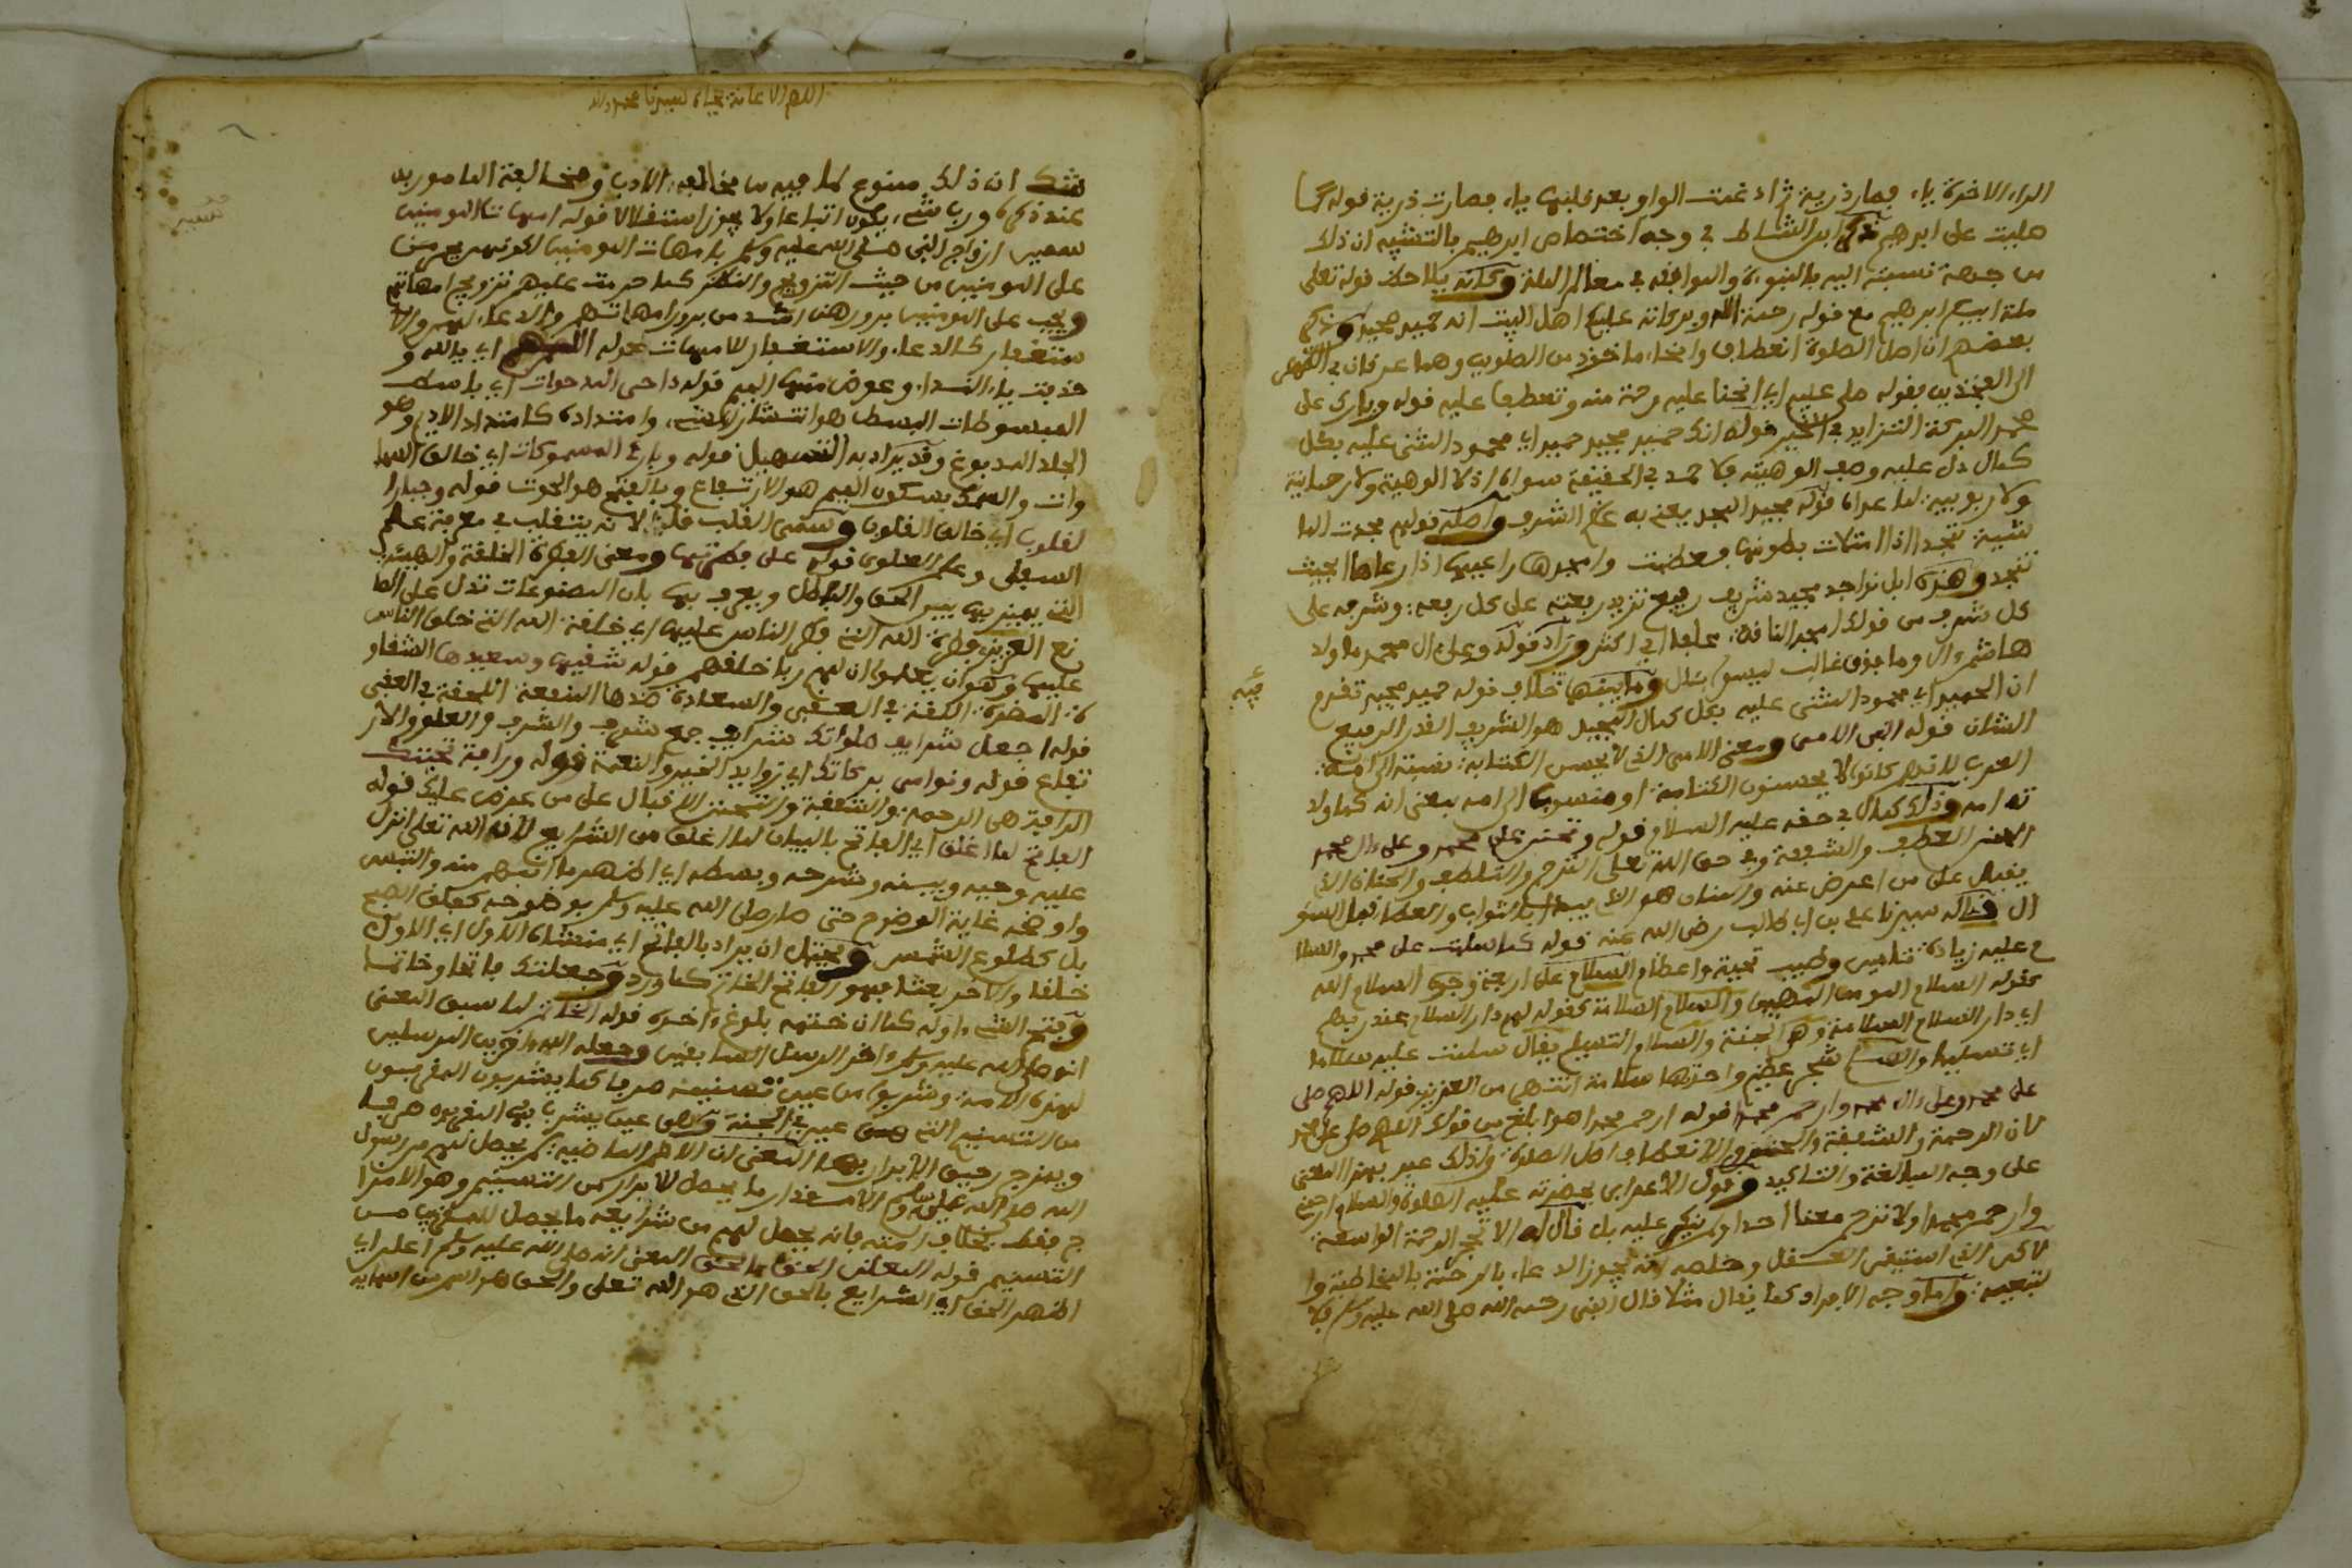 الراء الاخيرة ياء فصار ذرية ثم ادغمت الواو بعد قلبها ياء فصارت ذرية قوله كما
صليت على ابرهيم ذكر ابن الشاط في وجه اختصاص ابرهيم بالتشبيه ان ذلك
من جهة نسبته اليه بالنبوة والموافقة في معالم الملة وكانه يلاحظ قوله تعلى
ملة ابيكم ابرهيم مع قوله رحمة الله وبركاته عليكم اهل البيت انه حميد مجيد وذكر
بعضهم ان اصل الصلوة انعطاف وانحناء ماخوذ من الصلوين وهما عرفان في الظهر
الى الفخذين فقوله صلى عليه اي انحنا عليه رحمة منه وتعطفا عليه قوله وبارك على
محمد البركة التزايد في الخير قوله انك حميد مجيد حميد اي محمود المثنى عليه بكل
كمال دل عليه وصف الوهيته فلا حمد في الحقيقة سواه اذ لا الوهية ولا رحمانية
ولا ربوبية لما عداه قوله مجيد المجد يعني به عظم الشرف واصله قولهم مجدت الما
شية تمجد اذا امتلات بطونها وعظمت وامجدها راعيها اذا رعاها بحيث
تمجد وهذه ابل نواجد مجيد شريف رفيع تزيد رفعته على كل رفعة وشرفه على
كل شرف من قولك امجد الناقة علفا اي اكثر وزاد قوله وعلى ال محمد ما ولد
هاشم وال وما فوق غالب ليسوا بئال وما بينهما خلاف قوله حميد مجيد تقدم
ان الحميد اي محمود المثنى عليه بكل كمال المجيد هو الشريف القدر الرفيع
الشان قوله النبي الامي ومعنى الامي الذي لا يحسن الكتابة نسبة الى امة
العرب لانهم كانوا لا يحسنون الكتابة او منسوب الى امه بمعنى انه كما ولد
ته امه وذلك كمال في حقه عليه السلام قوله وتحنن على محمد وعلى ءال محمد
التحنن العطف والشفقة وفي حق الله تعلى الترحم والتلطف والحنان الذي
يقبل على من اعرض عنه والمنان هو الذي يبدا بالثواب والعطا قبل السو
ال قاله سيدنا علي بن ابي طالب رضي الله عنه قوله كما سلمت على محمد والسلا
م عليه زيادة تامين وطيب تحية واعظام السلام على اربعة وجوه السلام الله
كقوله السلام المومن المهيمن والسلام السلامة كقوله لهم دار السلام عند ربهم
اي دار السلام السلامة وهي الجنة والسلام التسليم يقال سلمت عليه سلاما
اي تسليما والسلام شجر عظيم واحدتها سلامة انتهى من العزيزي قوله اللهم صلى
على محمد وعلى ءال محمد وارحم محمدا قوله ارحم محمدا هو ابلغ من قولك اللهم صل على محمد
لان الرحمة والشفقة والتحنن والانعطاف اصل الصلوة ولذلك عبر بهذا المعنى
على وجه المبالغة والتاكيد وقول الاعرابي بحضرته عليه الصلوة والسلام ارحمني
وارحم محمدا ولا ترحم معنا احدا ولم ينكر عليه بل قال له لا تحجر الرحمة الواسعة
لاكن الذي استيقن العسقل وخلصه انه يجوز الدعاء بالرحمة بالمخاطبة وا
لتبعية واما وجه الافراد كما يقال مثلا قال النبي رحمه الله صلى الله عليه وسلم فلا
اللهم الاعانة بجاه سيدنا محمد وءاله
شك ان ذلك ممنوع لما فيه من مخالفة الادب ومخالفة المامور به
عند ذكره ورب شيء يكون اتباعا ولا يجوز استقلالا قوله امهات المومنين
سمين ازواج النبي صلى الله عليه وسلم بامهات المومنين لكونهن حرمن
على المومنين من حيث التزويج والنظر كما حرمت عليهم تزويج امهاتهم
ويجب على المومنين برورهن اشد من برور امهاتهم والدعاء لهن والا
ستغفار كالدعاء والاستغفار للامهات قوله اللهم اي يا الله و
حذفت ياء النداء وعوض منها الميم قوله داحي المدحوات اي باسط
المبسوطات البسط هو انتشار الشيء وامتداده كامتداد الاديم وهو
الجلد المدبوغ وقد يراد به التسهيل قوله وبارئ المسموكات اي خالق السما
وات والسمك بسكون الميم هو الارتفاع وبالفتح هو الحوت قوله وجبار ا
لقلوب اي خالق القلوب وسمي القلب قلبا لانه يتقلب في معرفة علم
السفلى وعلم العلوى قوله على فطرتها ومعنى الفطرة الخلقة والهيئة
التي يميز بها بين الحق والباطل ويعرف بها بان المصنوعات تدل على الصا
نع العزيز فطرة الله التي فطر الناس عليها اي خلقة الله التي خلق الناس
عليها وهو ان يعلموا ان لهم ربا خلقهم قوله شقيها وسعيدها الشقاو
ة المضرة اللاحقة في العقبى والسعادة ضدها المنفعة اللاحقة في العقبى
قوله اجعل شرايف صلواتك شرايف جمع شرف والشرف والعلو والار
تفاع قوله ونوامي بركاتك اي زوايد الخير والنعمة قوله ورافة تحننك
الرافة هي الرحمة والشفقة والتحنن الاقبال على من عرض عليك قوله
الفاتح لما اغلق اي الفاتح بالبيان لما اغلق من الشرايع لانه الله تعلى انزل
عليه وحيه وبينه وشرحه وبسطه اي اظهر ما انبهم منه والتبس
واوضحه غاية الوضوح حتى صار صلى الله عليه وسلم بوضوحه كفلق الصبح
بل كطلوع الشمس ويحتمل ان يراد بالفاتح اي منشاه الاول اي الاول
خلقا والاخر بعثا فهو الفاتح الخاتم كما ورد وجعلتك فاتحا وخاتما
وفتح الشيء اوله كما ان ختمه بلوغ ءاخره قوله الخاتم لما سبق المعنى
انه صلى الله عليه وسلم ءاخر الرسل السابقين وجعله الله ءاخر المرسلين
لهذه الامة وشربوا من عين تسنيمه صرفا كما يشربون المقربون
من التسنيم التي هي عين في الجنة وهي عين يشرب بها المقربون صرفا
ويمزج رحيق الابرار بها المعنى ان الامم الماضية لم يحصل لهم من رسول
الله صلى الله عليه وسلم الا مقدار ما يحصل للابرار من التسنيم وهو الامتزا
ج فقط بخلاف امته فانه يحصل لهم من شرايعه ما يحصل للمقربين من
التسنيم قوله المعلن الحق بالحق المعنى انه صلى الله عليه وسلم اعلن اي
اظهر الحق اي الشرايع بالحق الذي هو الله تعلى والحق هو اسم من اسمايه